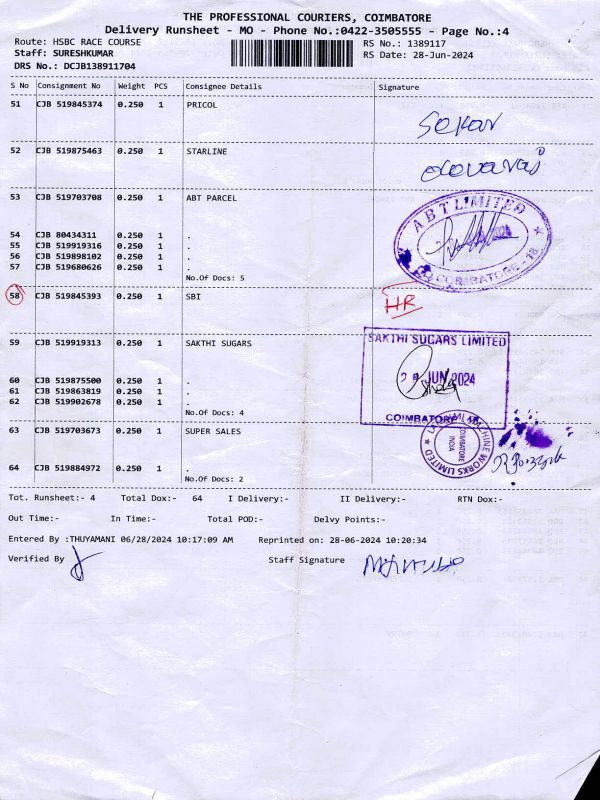 THE PROFESSIONAL COURIERS, COIMBATORE
Delivery Runsheet - MO - Phone No.:0422-3505555 - Page No.:4
Route: HSBC RACE COURSE RS No.: 1389117
Staff: SURESHKUMAR RS Date: 28-Jun-2024
DRS No.: DCJB138911704
S No Consignment No Weight PCS Consignee Details Signature
51 CJB 519845374 0.250 1 PRICOL
Sekar
52 CJB 519875463 0.250 1 STARLINE
53 CJB 519703708 0.250 1 ABT PARCEL
ABT LIMITED
54 CJB 80434311 0.250 1 .
55 CJB 519919316 0.250 1 .
56 CJB 519898102 0.250 1 .
57 CJB 519680626 0.250 1 .
COIMBATORE - 18
No.Of Docs: 5
58 CJB 519845393 0.250 1 SBI
HR
59 CJB 519919313 0.250 1 SAKTHI SUGARS
SAKTHI SUGARS LIMITED
60 CJB 519875500 0.250 1 .
JUN 2024
61 CJB 519863819 0.250 1 .
62 CJB 519902678 0.250 1 .
No.Of Docs: 4
COIMBATORE 18
63 CJB 519703673 0.250 1 SUPER SALES
MACHINE WORKS LIMITED
COIMBATORE
INDIA
64 CJB 519884972 0.250 1 .
No.Of Docs: 2
Tot. Runsheet:- 4 Total Dox:- 64 I Delivery:- II Delivery:- RTN Dox:-
Out Time:- In Time:- Total POD:- Delvy Points:-
Entered By :THUYAMANI 06/28/2024 10:17:09 AM Reprinted on: 28-06-2024 10:20:34
Verified By Staff Signature